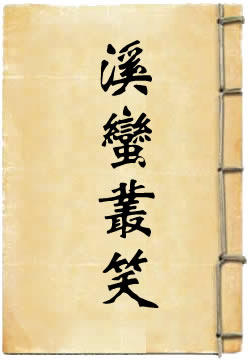 溪蠻叢笑